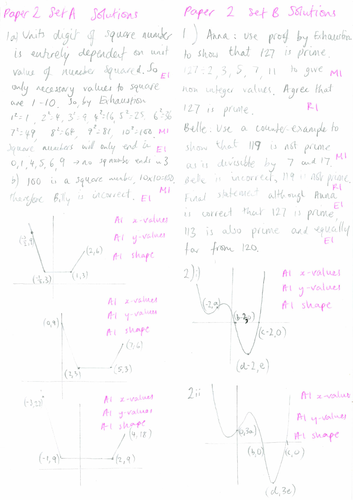 Paper 2 Set A Solutions
1a) Unit digit of square number
is entirely dependent on unit
value of number squared. So E1
only necessary values to square
are 1-10. So, by Exhaustion
1²=1, 2²=4, 3²=9, 4²=16, 5²=25, 6²=36
7²=49, 8²=64, 9²=81, 10²=100. M1
Square numbers will only end in
0,1,4,5,6,9 ∴ no square ends = 3 E1
b) 100 is a square number, 10x10=100,
therefore Billy is incorrect. E1
A1 x-values
A1 y-values
A1 shape
(2,6)
(1,3)
A1 x-values
A1 y-values
A1 shape
(0,9)
(7,6)
(3,3)
(5,3)
A1 x-values
A1 y-values
A1 shape
(4,18)
(-1,9)
(2,9)
Paper 2 Set B Solutions
1) Anna: use proof by Exhaustion
to show that 127 is prime.
127÷2, 3, 5, 7, 11 to give M1
non integer values. Agree that
127 is prime. R1
Belle: Use a counter-example to
show that 119 is not prime
as is divisible by 7 and 17. M1
Belle is incorrect, 119 is not prime. R1
Final statement although Anna
is correct that 127 is prime,
113 is also prime and equally
far from 120. E1
2)i)
A1 x-values
A1 y-values
A1 shape
(-2,a)
(b-2,0)
(c-2,0)
(d-2,e)
2ii
A1 x-values
A1 y-values
A1 shape
(0,3a)
(b,0)
(c,0)
(d,3e)